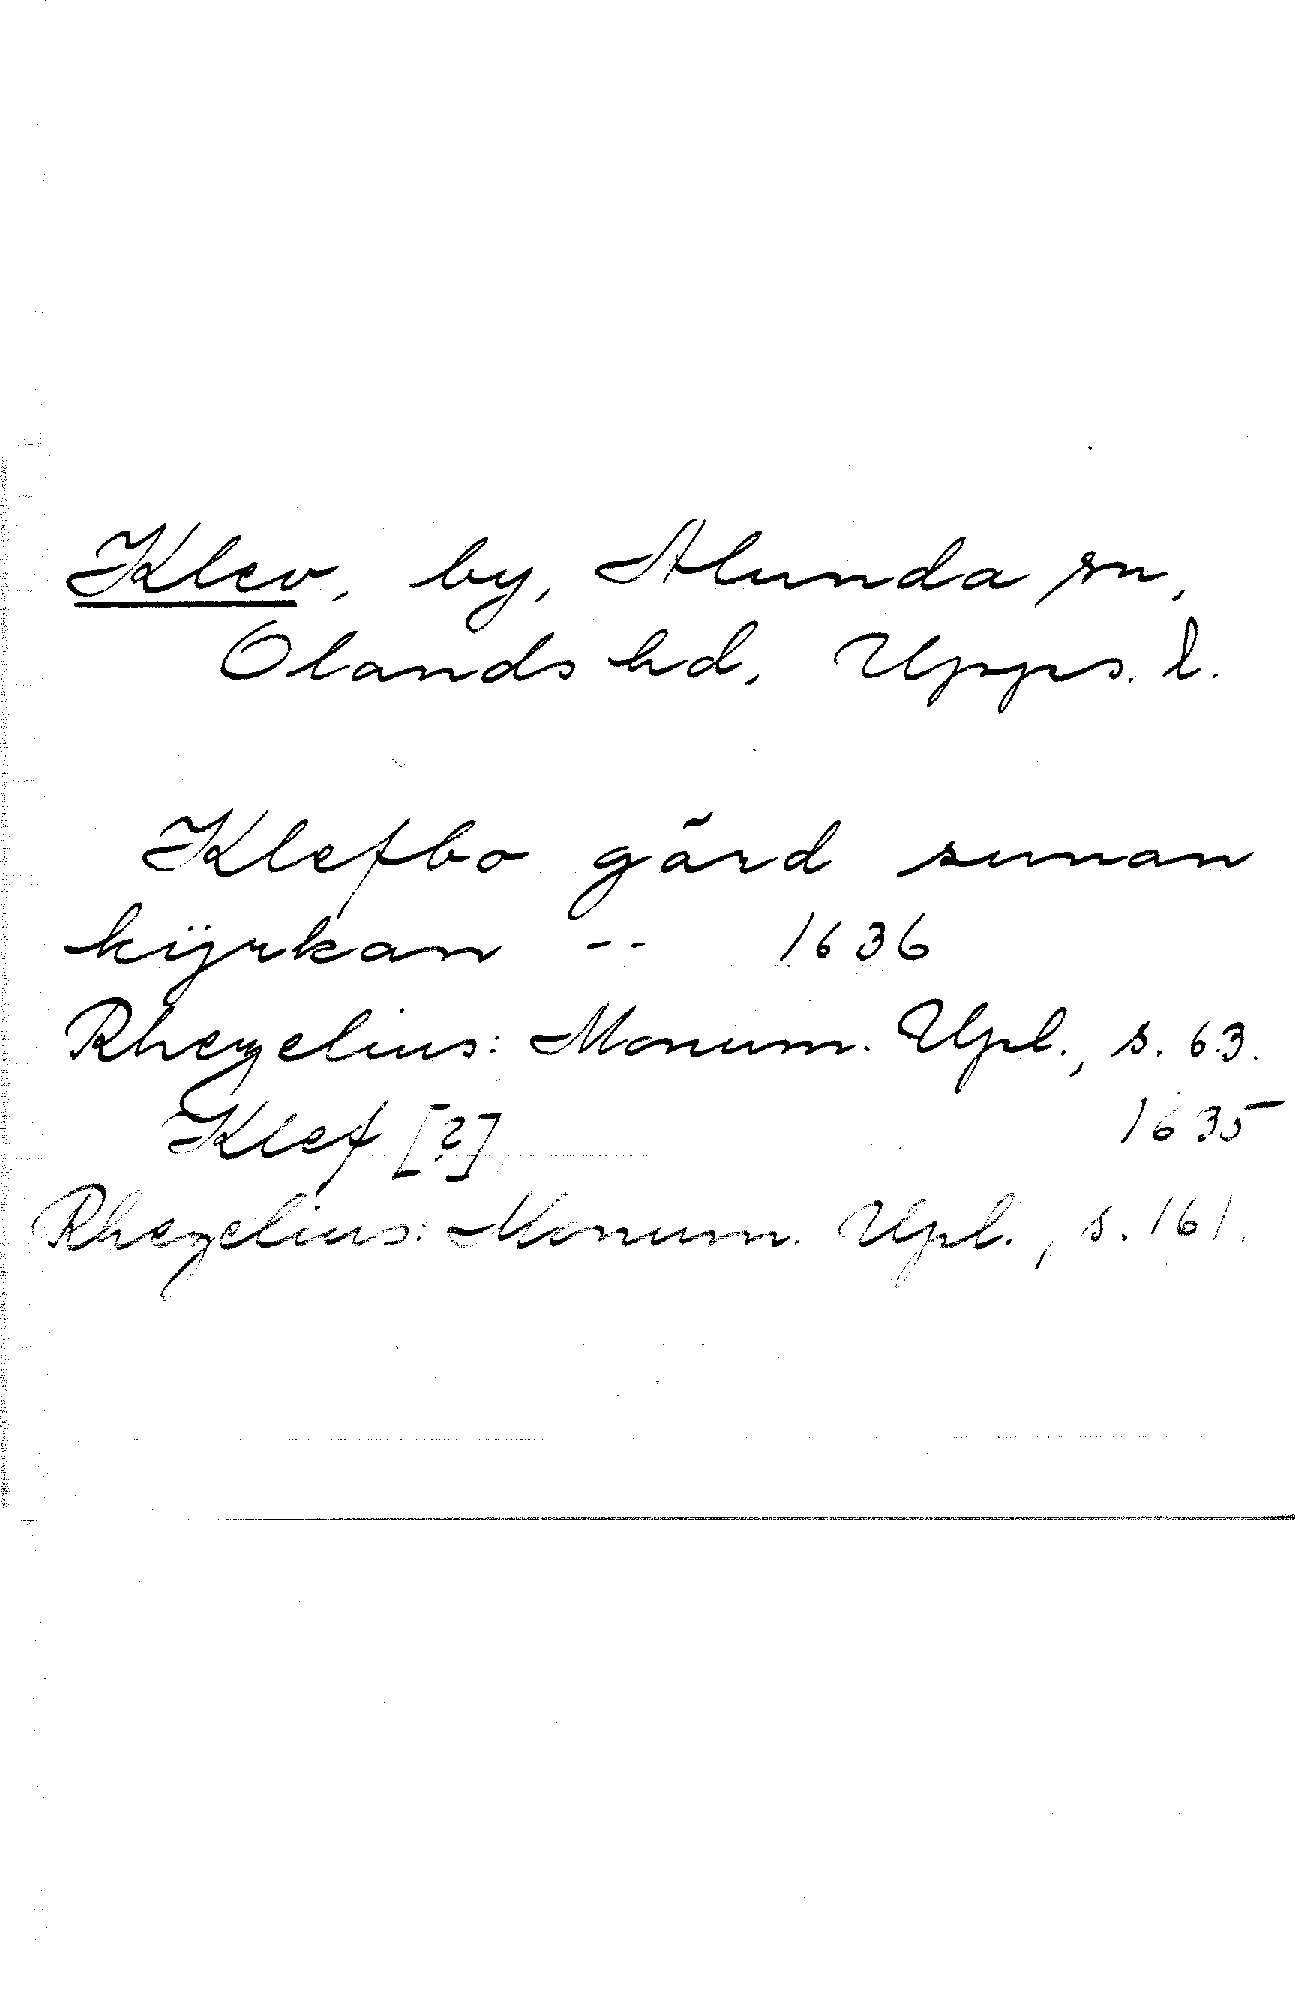 Klev, by, Alunda sn,
Olands hd, Upps. l.
Klefbo gård sunan
kÿrkan -- 1636
Rhezelius: Monum. Upl., s. 63.
Klef [?] 1635
Rhezelius: Monum. Upl., s. 161.